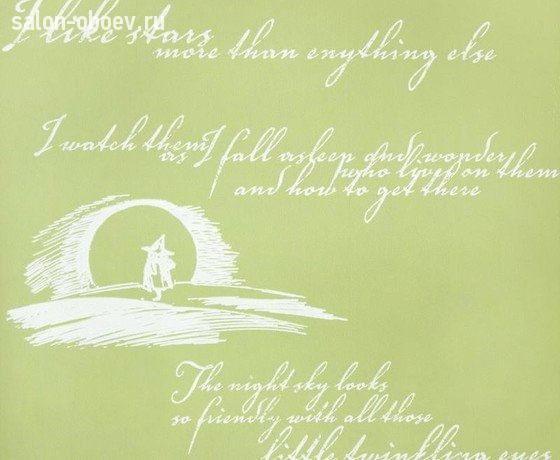 salon-oboev.ru
I like stars
more than enything else
I watch them
as I fall asleep and wonder
who lives on them
and how to get there
The night sky looks
so friendly with all those
little twinkling eyes